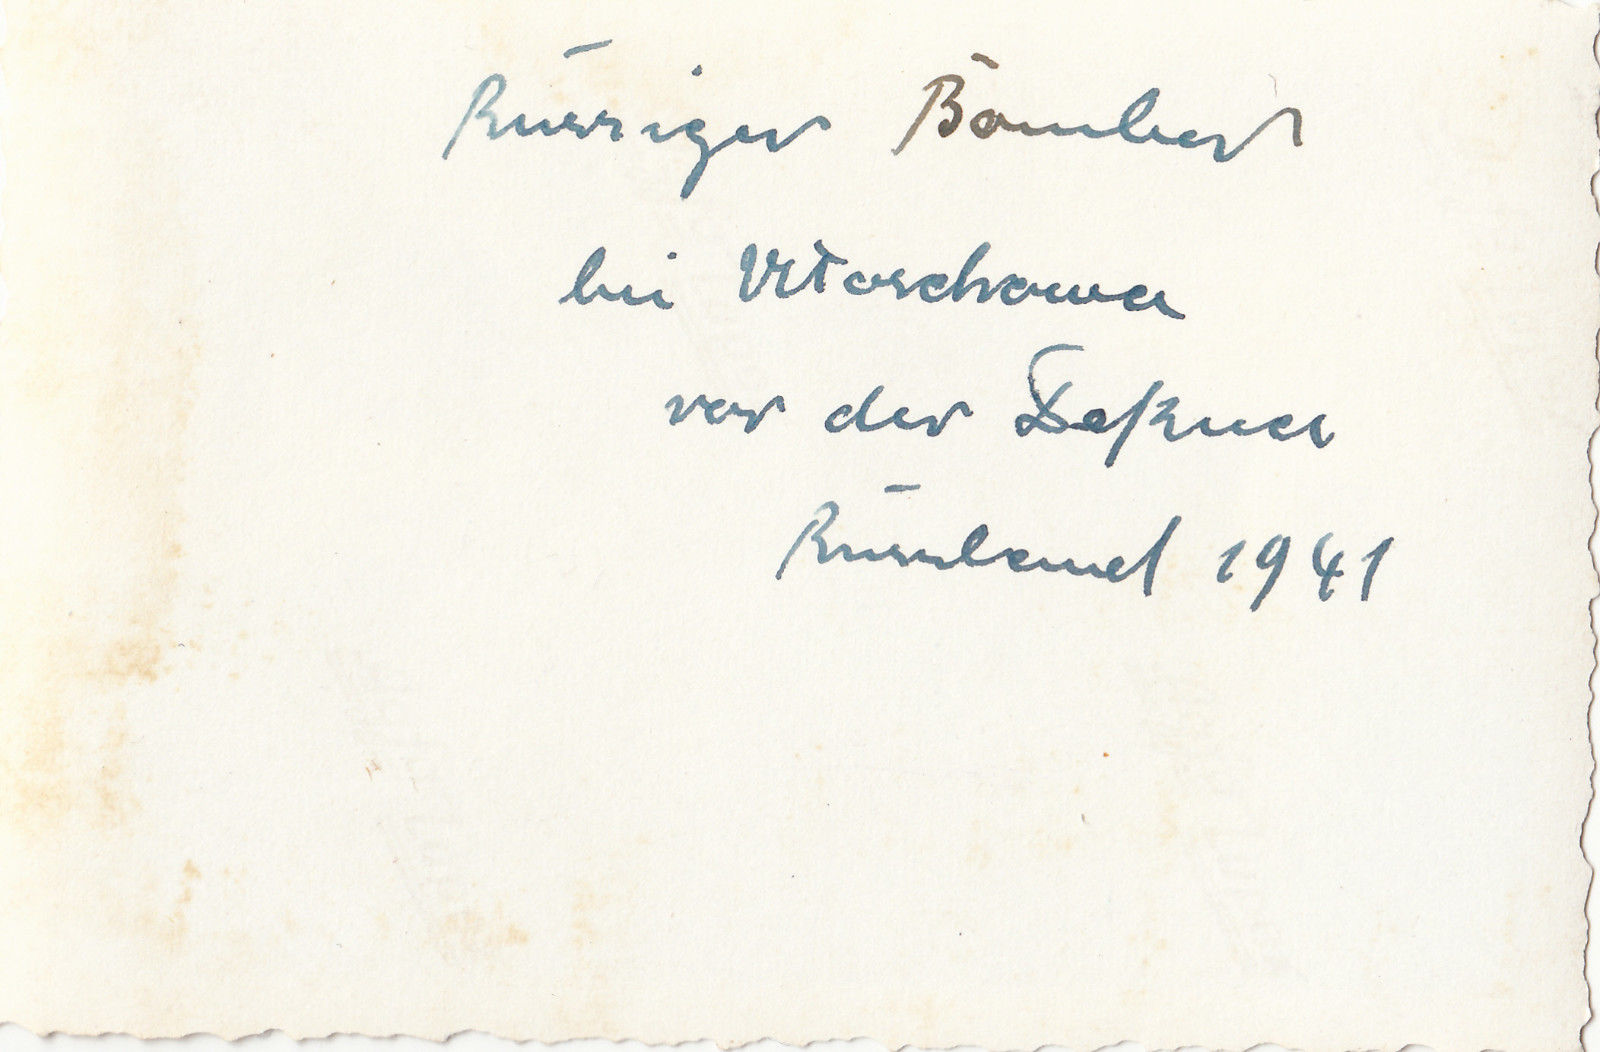 Russiger Bomber
bei Vitarchowa
vor der Deßna
Russland 1941